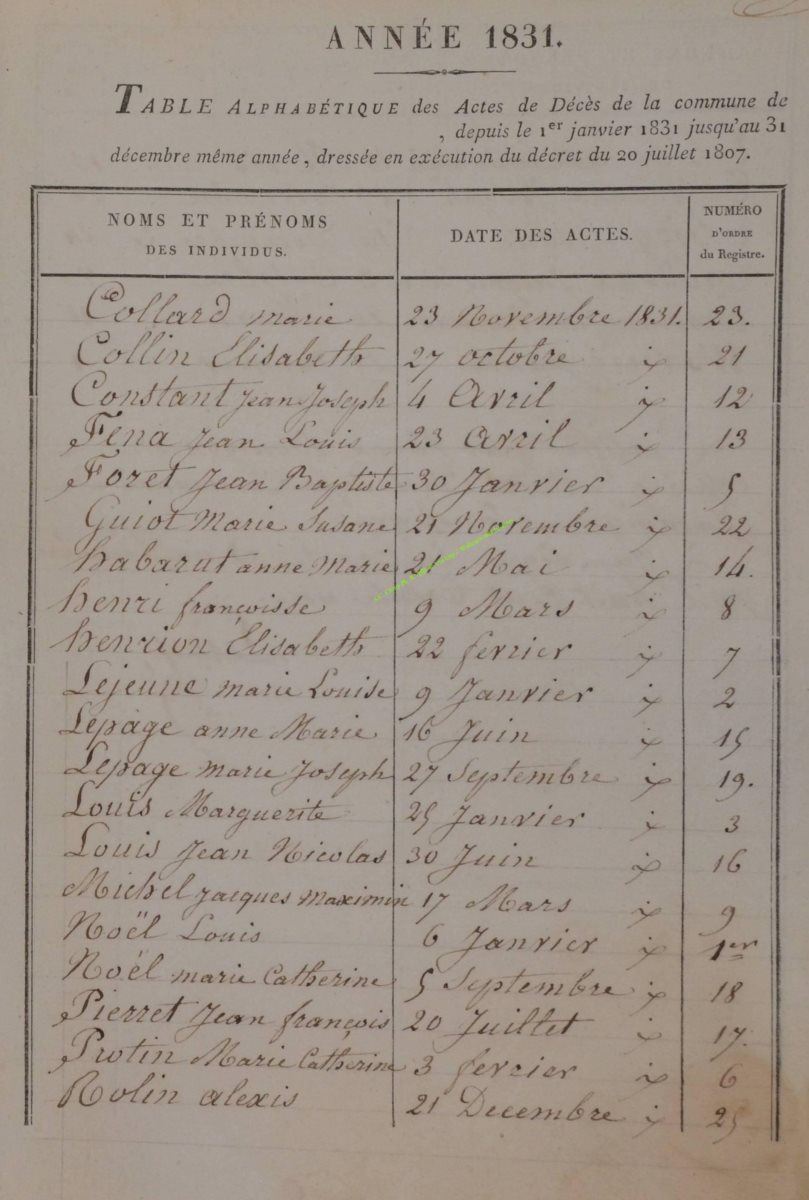 ANNÉE 1831.
TABLE ALPHABÉTIQUE des Actes de Décès de la commune de
, depuis le 1er janvier 1831 jusqu'au 31
décembre même année, dressée en exécution du décret du 20 juillet 1807.
NOMS ET PRÉNOMS DES INDIVIDUS. DATE DES ACTES. NUMÉRO D'ORDRE du Registre.
Collard marie 23 Novembre 1831. 23.
Collin Elisabeth 27 octobre 21
Constant Jean Joseph 4 Avril 12
Fena Jean Louis 23 Avril 13
Foret Jean Baptiste 30 Janvier 5
Guiot Marie Susane 21 Novembre 22
habarut anne Marie Mai 14.
henri françoisse 9 Mars 8
henrion Elisabeth 22 fevrier 7
Lejeune marie Louise 9 Janvier 2
Lepage anne Marie 16 Juin 15
Lepage marie Joseph 27 Septembre 19.
Louis Marguerite 25 Janvier 3
Louis Jean Nicolas 30 Juin 16
Michel Jacques Maximin 17 Mars 9
Noël Louis 6 Janvier 1er
Noël marie Catherine 5 Septembre 18
Pierret Jean françois 20 Juillet 17.
Protin Marie Catherine 3 fevrier 6
Rolin alexis 21 Decembre 25